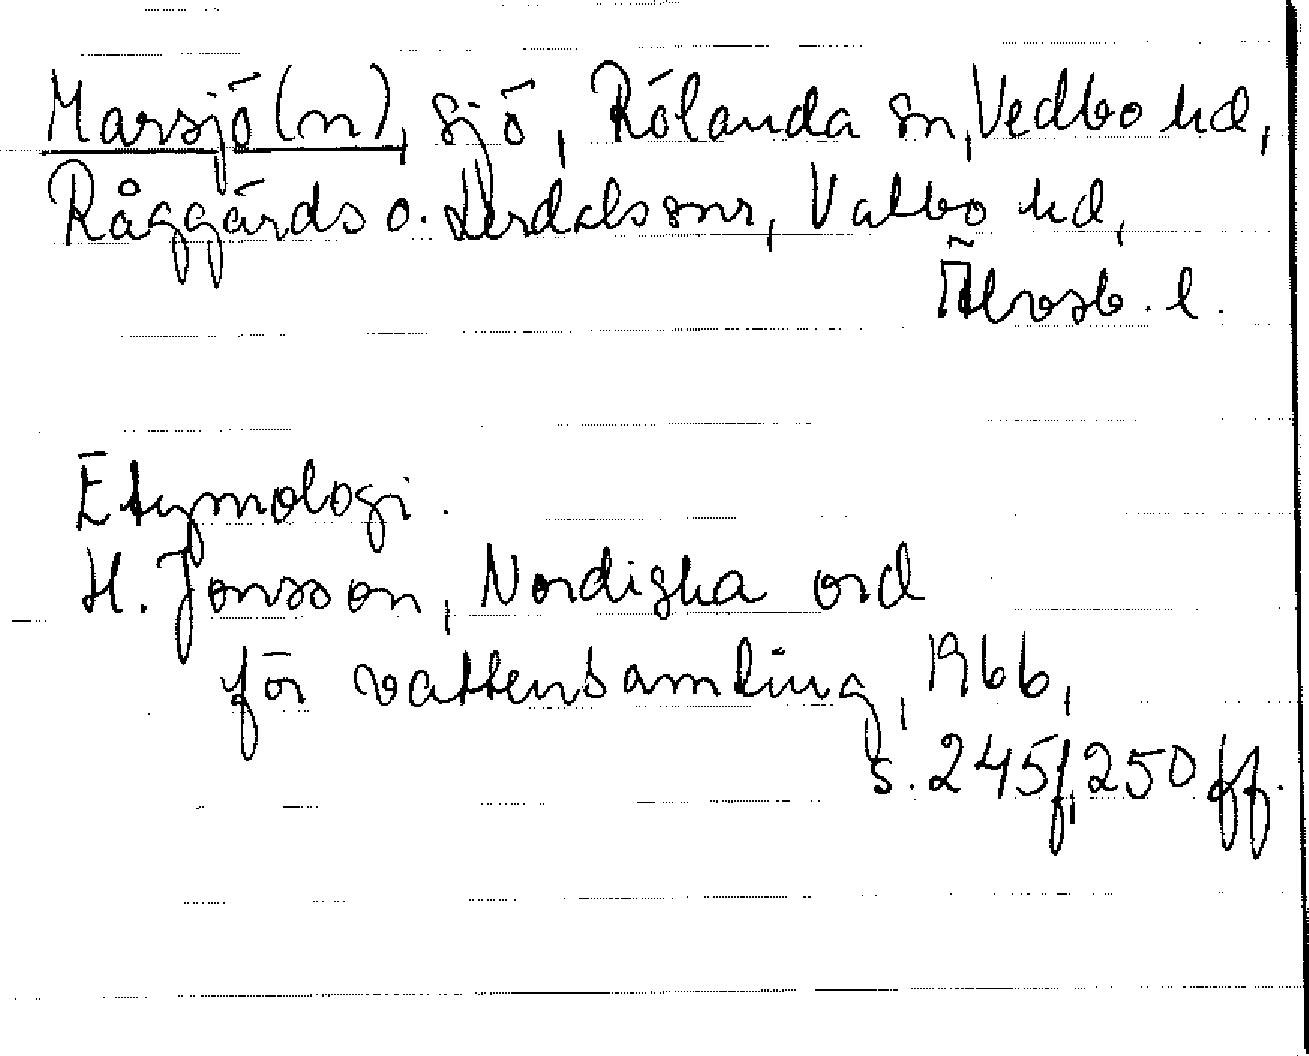 Marsjö(n), sjö, Rölanda sn, Vedbo hd,
Råggärds o. Järdals snr, Valbo hd,
Älvsb. l.
Etymologi.
H. Jonsson, Nordiska ord
för vattensamling, 1966,
s. 245f, 250 ff.